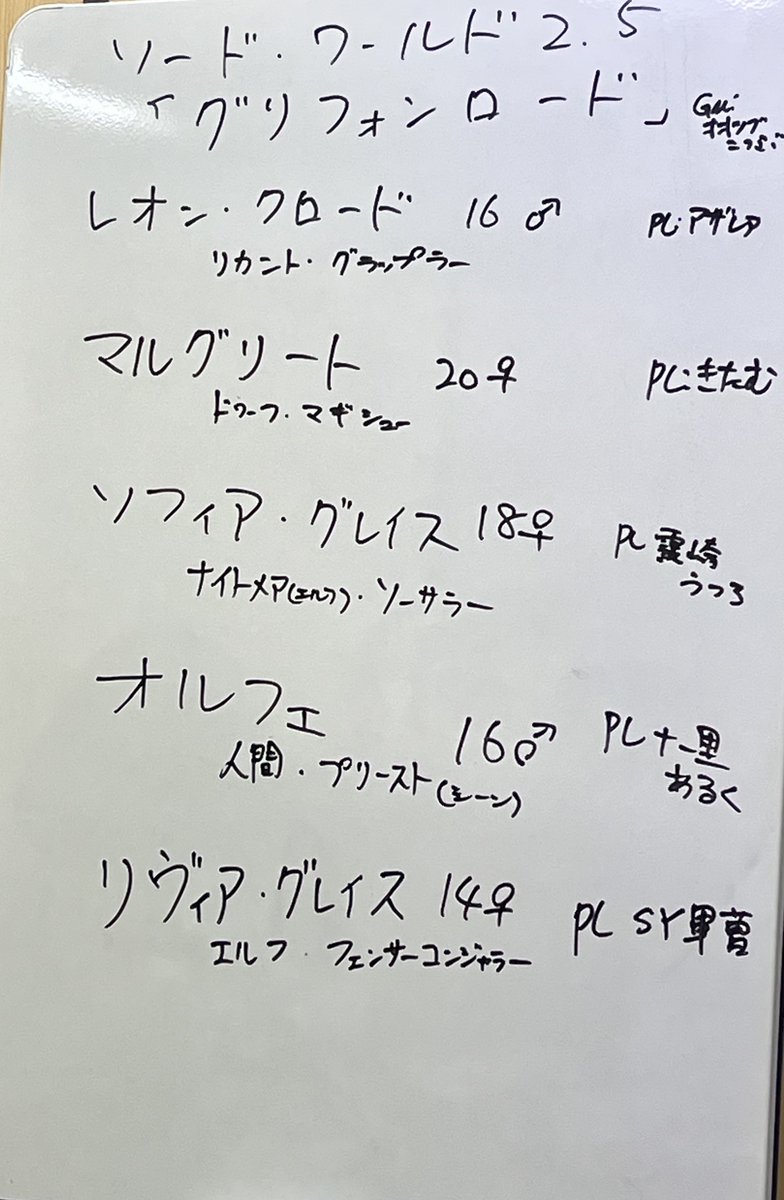 ソード・ワールド2.5
「グリフォンロード」
レオン・クロード 16 ♂ PL:アザレア
リカント・グラップラー
マルグリート 20♀ PL:きたむ
ドワーフ・マギシュー
ソフィア・グレイス 18♀ PL 霊崎
うつろ
ナイトメア(エルフ)・ソーサラー
オルフェ 16♂ PL 十里
あるく
人間・プリースト(シーン)
リヴィア・グレイス 14♀ PL SY軍曹
エルフ・フェンサーコンジャラー